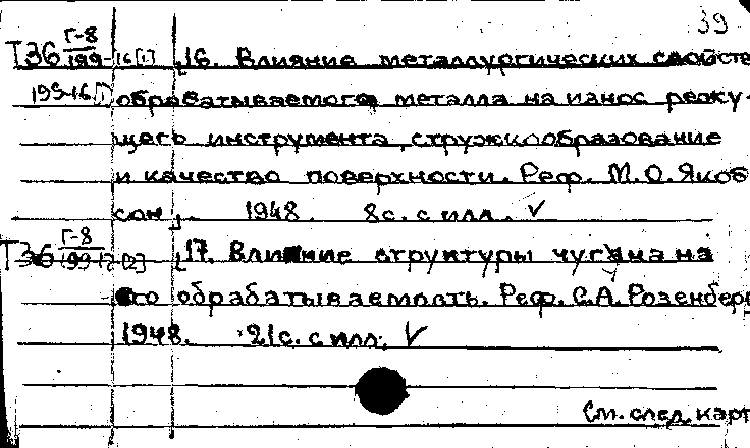 39
Т36 Г-8
199-16[1] [16. Влияние металлургических свойств
199-16[1] обрабатываемого металла на износ режу-
щего инструмента, стружкообразование
и качество поверхности. Реф. М.О. Якоб
сон]. 1948. 8с. с илл. ✓
Т36 Г-8
199-17[2] [17. Влияние структуры чугуна на
его обрабатываемость. Реф. С.А. Розенберг
1948. 21с. с илл. ✓
См. след. карт